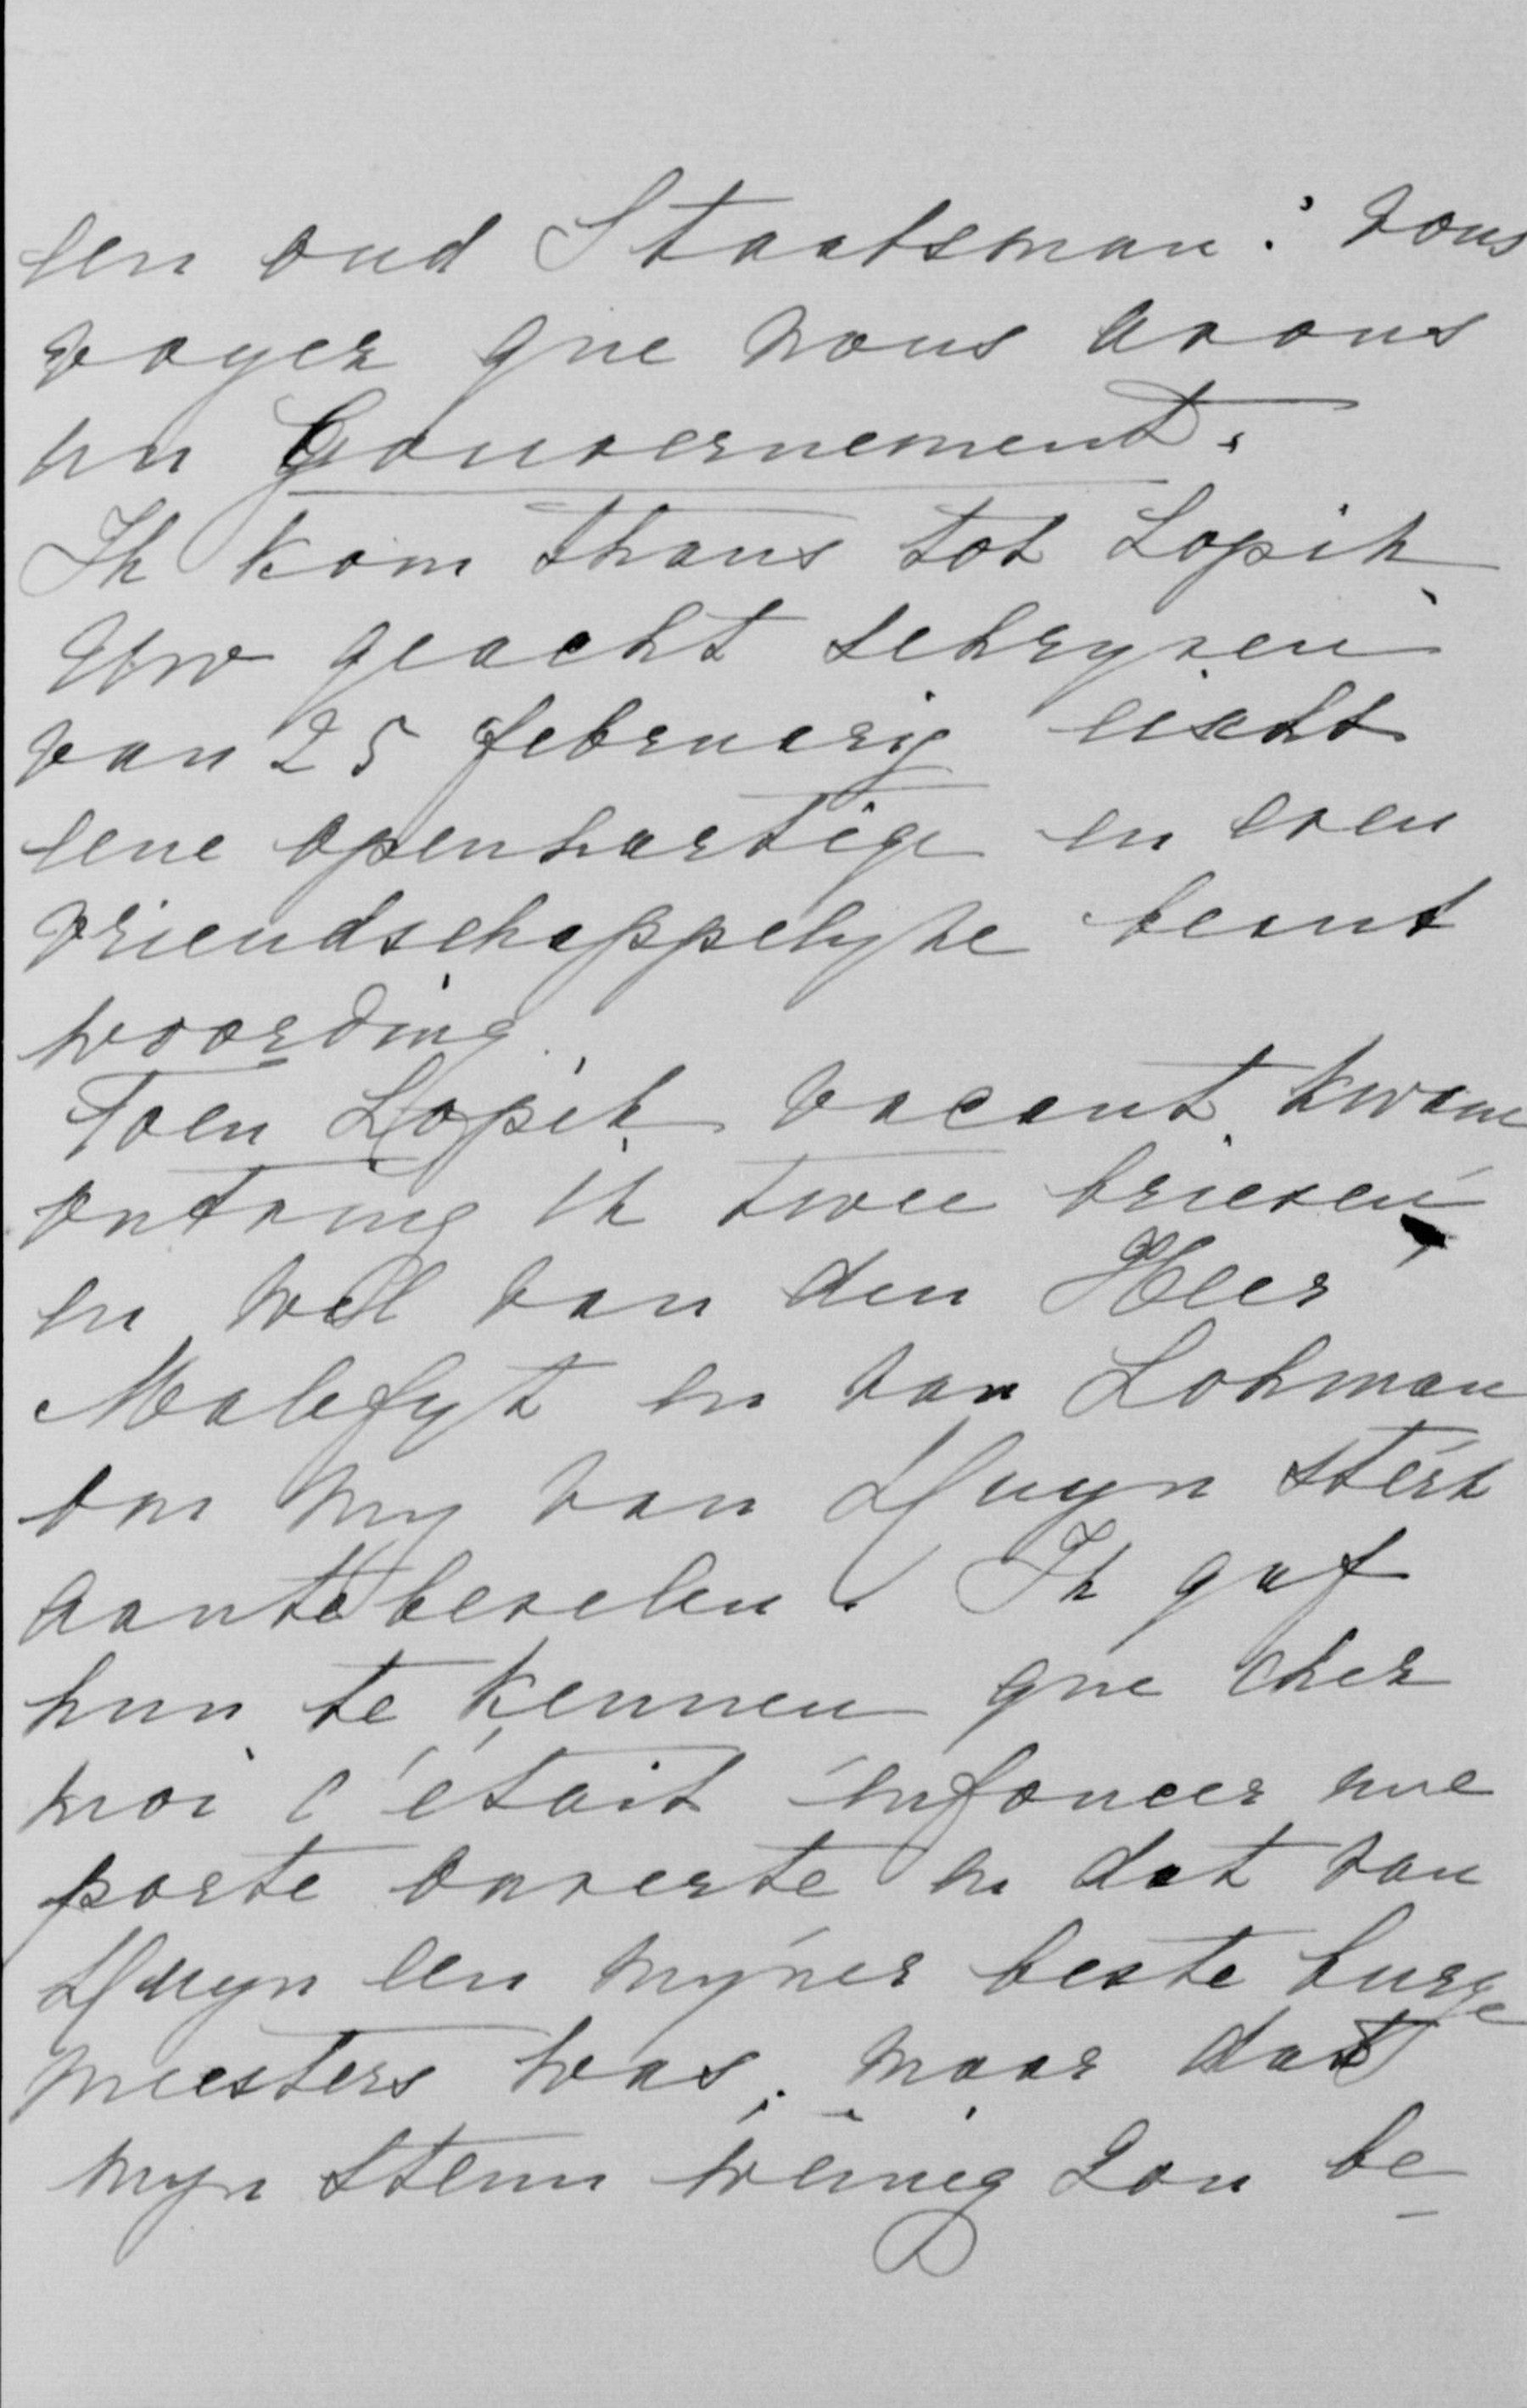 een oud Staatsman: "vous
voyez que nous avons
un Gouvernement.
Ik kom thans tot Lopik
Uw geacht schryven
van 25 februarij eischt
eene openhartige en even
vriendschappelyke beant
woording.
Toen Lopik vacant kwam
ontving ik twee brieven
en wel van den Heer
Malefyt en van Lohman
om my van Luyn sterk
aantebevelen. Ik gaf
hun te kennen que chez
moi c'était enfoncer une
porte ouverte en dat van
Luyn een myner beste burge
meesters was; maar dat
myn stem weinig zou be